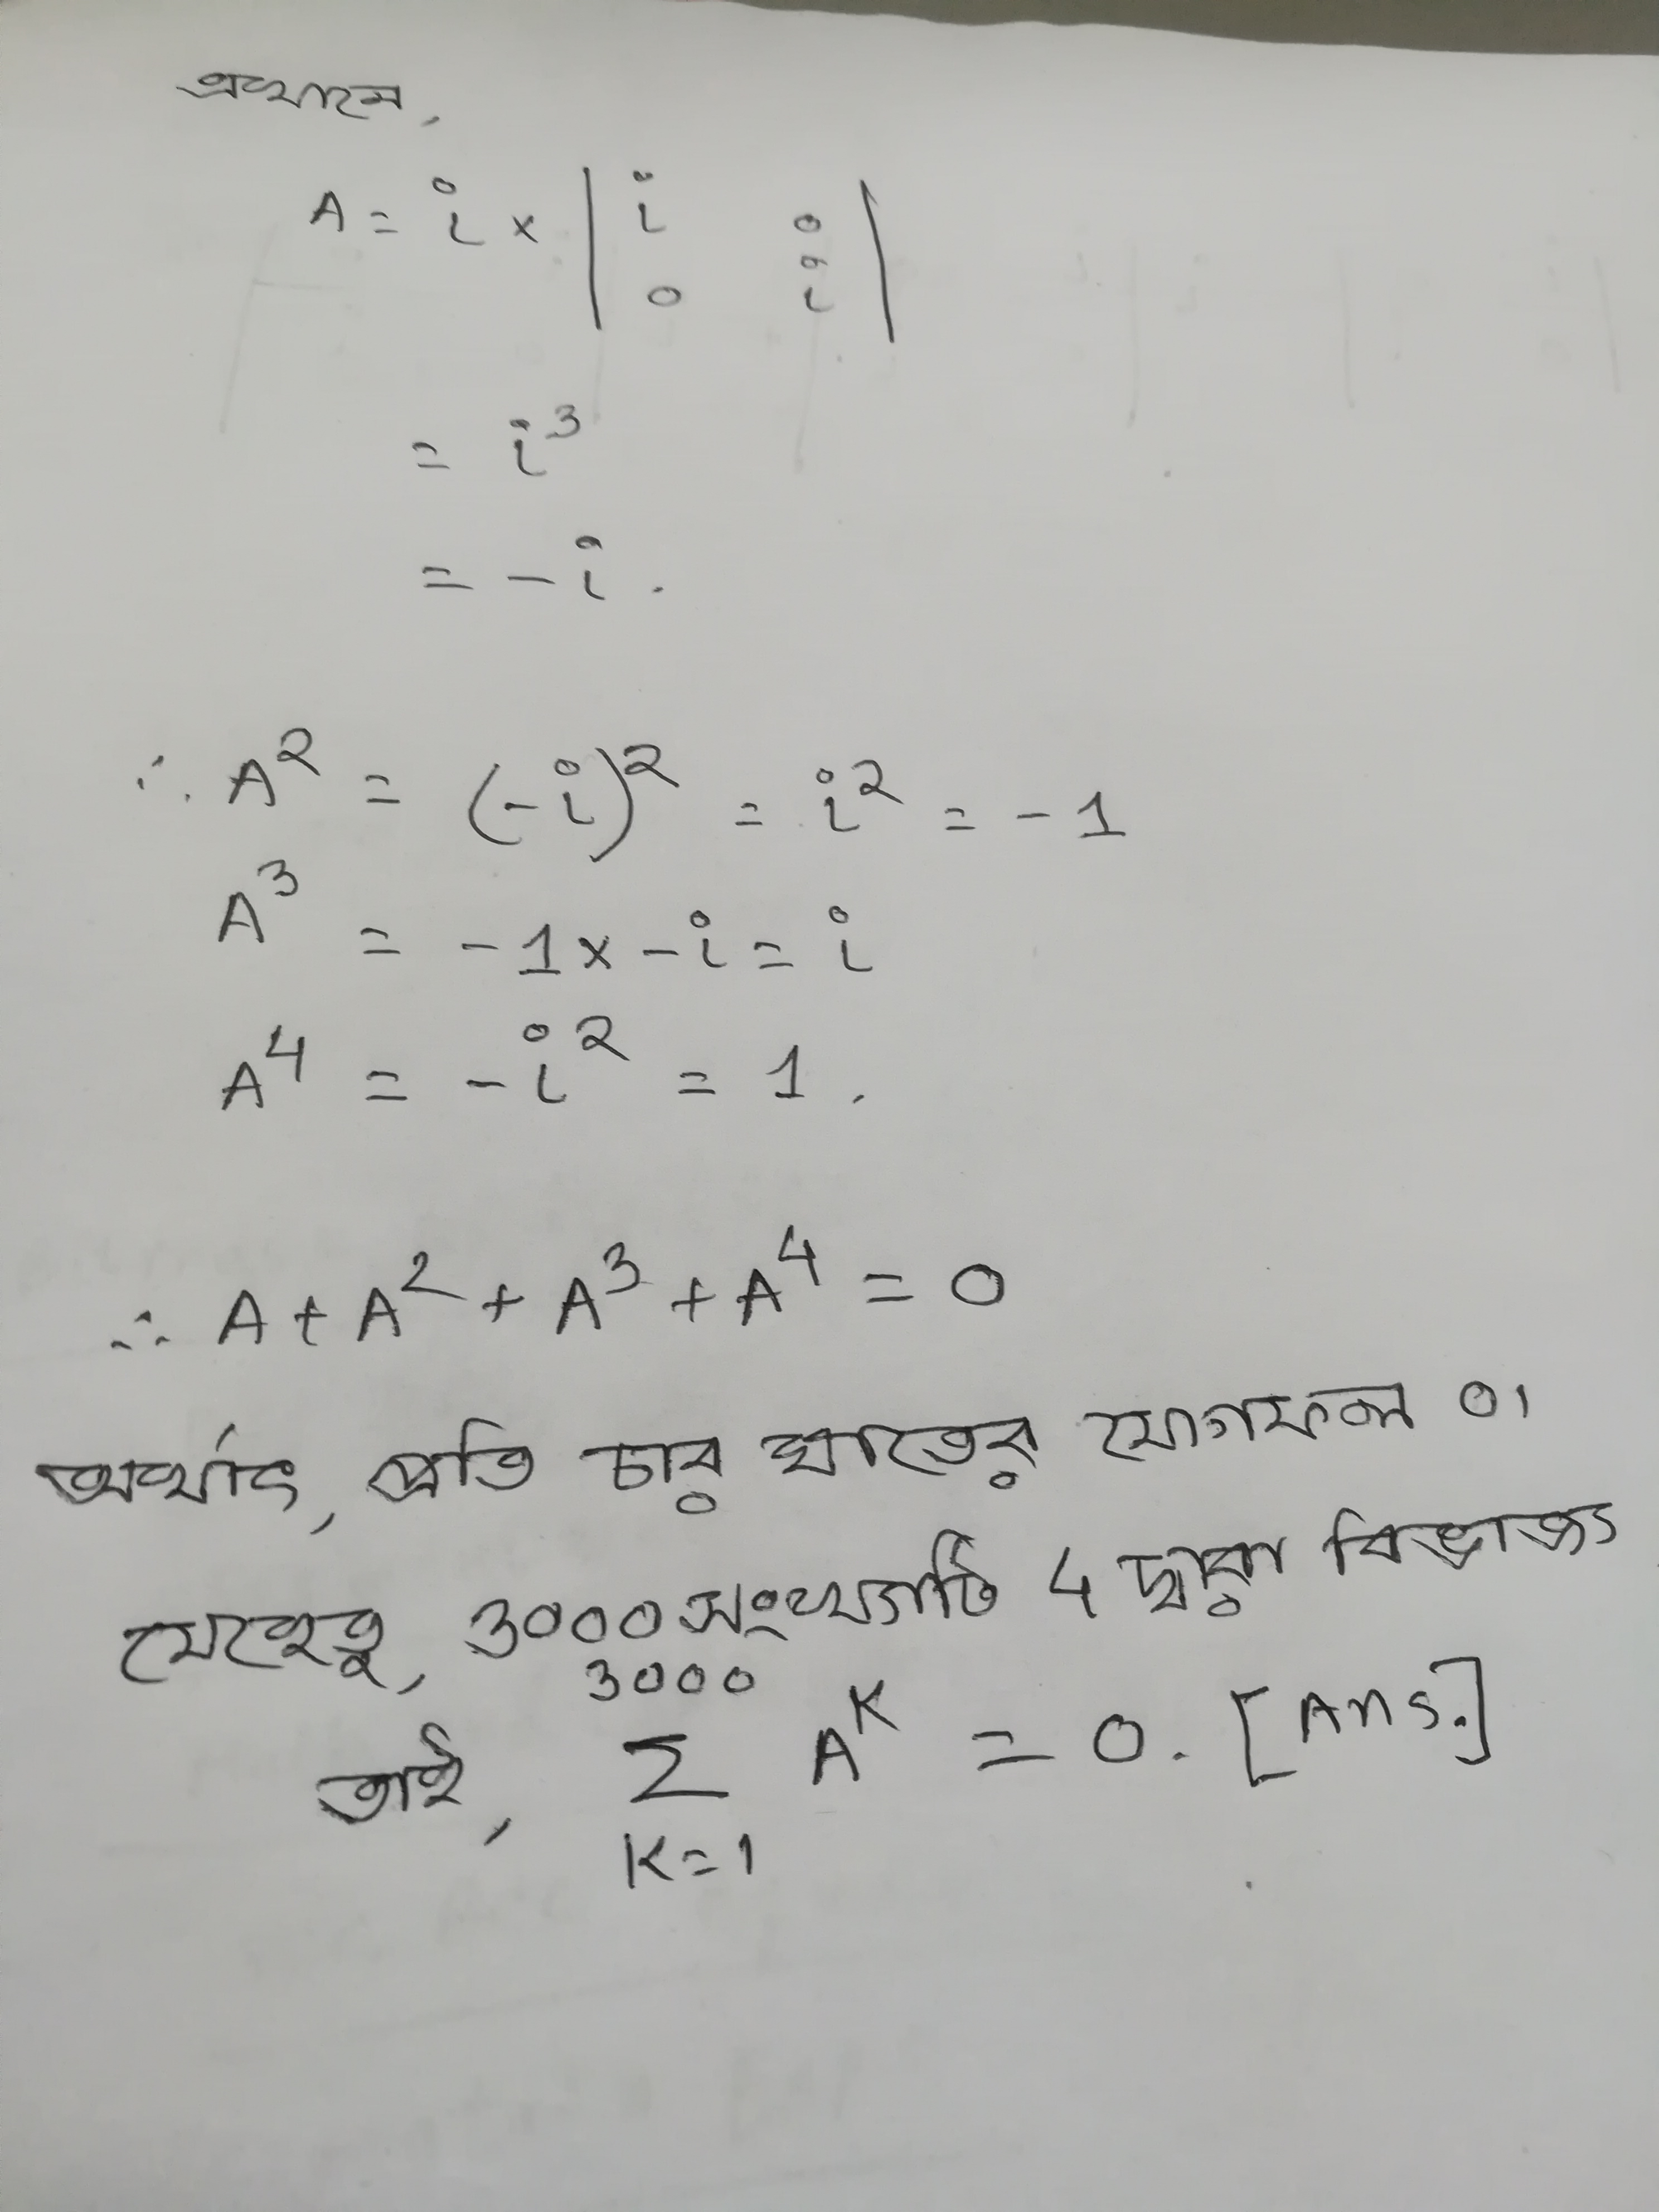 এখানে,
A = i × | i 0 |
| 0 i |
= i³
= -i.
∴ A² = (-i)² = i² = -1
A³ = -1 × -i = i
A⁴ = -i² = 1.
∴ A + A² + A³ + A⁴ = 0
অর্থাৎ, প্রতি চার ঘাতের যোগফল 0।
যেহেতু, 3000 সংখ্যাটি 4 দ্বারা বিভাজ্য
3000
তাই, Σ Aᴷ = 0. [Ans.]
K=1